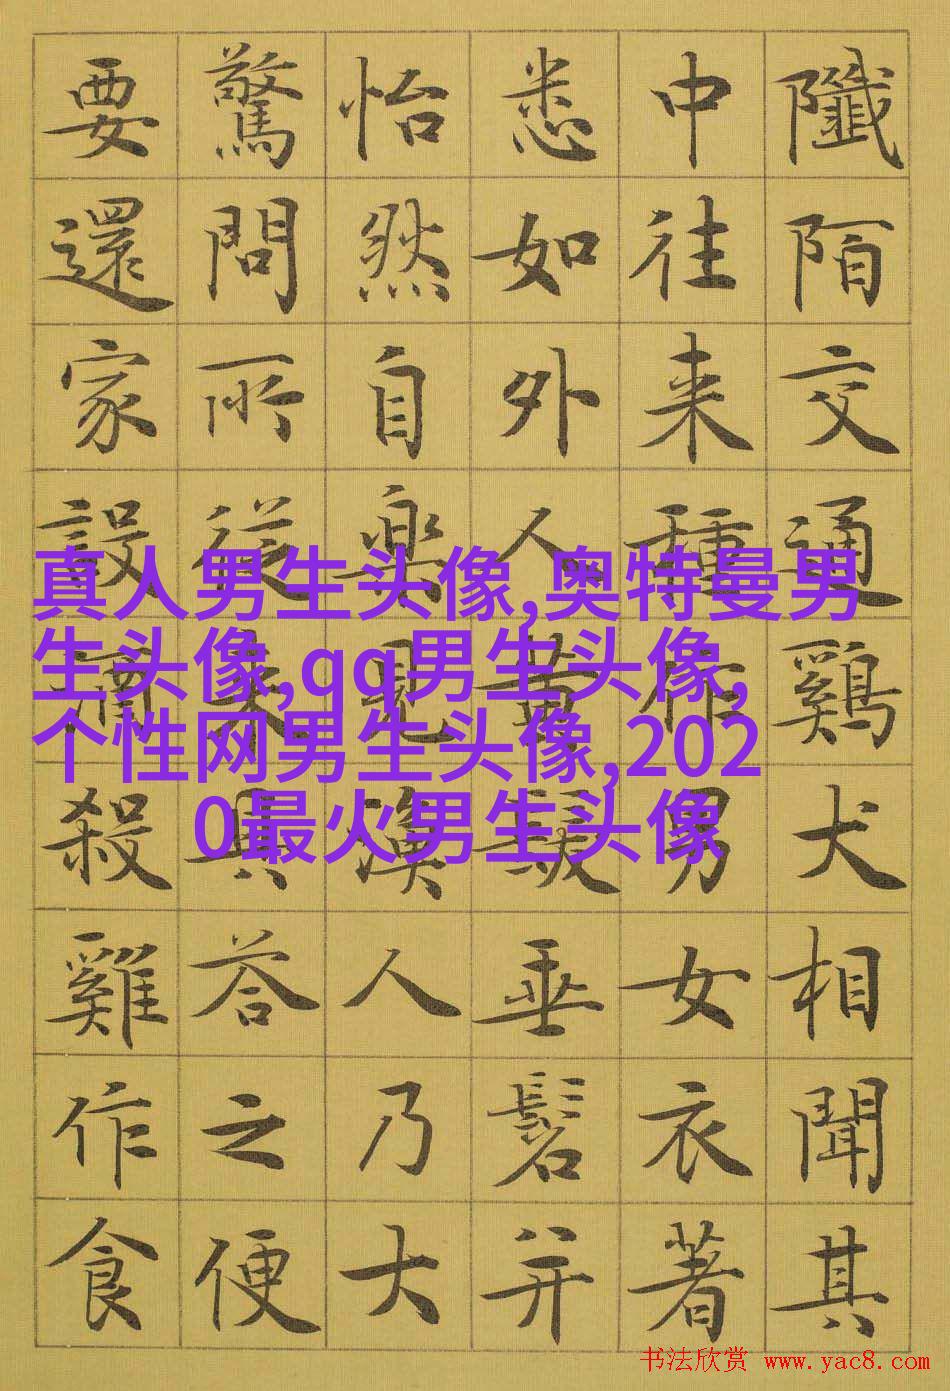 陌交通鷄犬相聞其
中往来種作男女衣著
悉如外人黄髮垂髫并
怡然自楽見漁人乃大
驚問所從来具荅之便
要還家設酒殺雞作食
真人男生头像,奥特曼男
生头像,qq男生头像,
个性网男生头像,202
0最火男生头像
书法欣赏 www.yac8.com